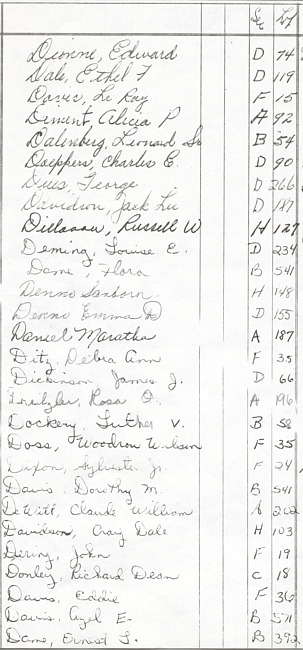 Sec Lot
Dionne, Edward D 74
Dale, Ethel F D 119
Davis, Le Roy F 15
Dement, Alicia P A 92
Dalenberg, Leonard Sr B 54
Doeppers, Charles C. D 90
Dues, George D 266
Davidson, Jack Lee D 147
Dillaway, Russell W H 127
Deming, Louise E. D 234
Dame, Flora B 541
Denno Sanborn H 148
Denno Emma D D 155
Daniel Maratha A 187
Ditz, Debra Ann F 35
Dickinson James J. D 66
Rosa O. A 196
Dockery, Luther V. B 58
Doss, Woodrow Wilson F 35
Dixon, Sylvester Jr. F 24
Davis Dorothy M. B 541
DeWitt, Claude William A 202
Davidson, Craig Dale H 103
Dering, John F 19
Donley, Richard Dean C 18
Davis, Eddie F 36
Davis, Azel E. B 571
Dame, Ernest L. B 392